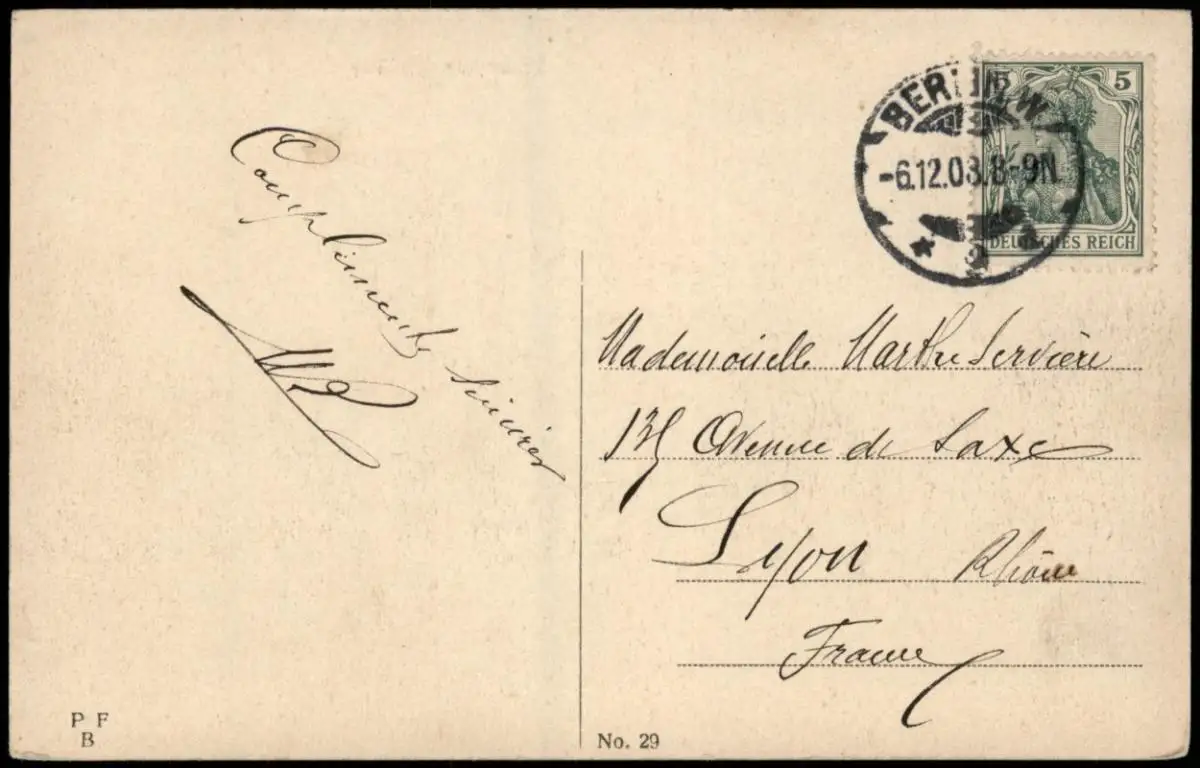 BERLIN.W.
-6.12.08.8-9N.
* 9
5 5
DEUTSCHES REICH
Compliments
Sincères
Mademoiselle Marthe Servière
135 Avenue de Saxe
Lyon Rhône
France
P F
B
No. 29